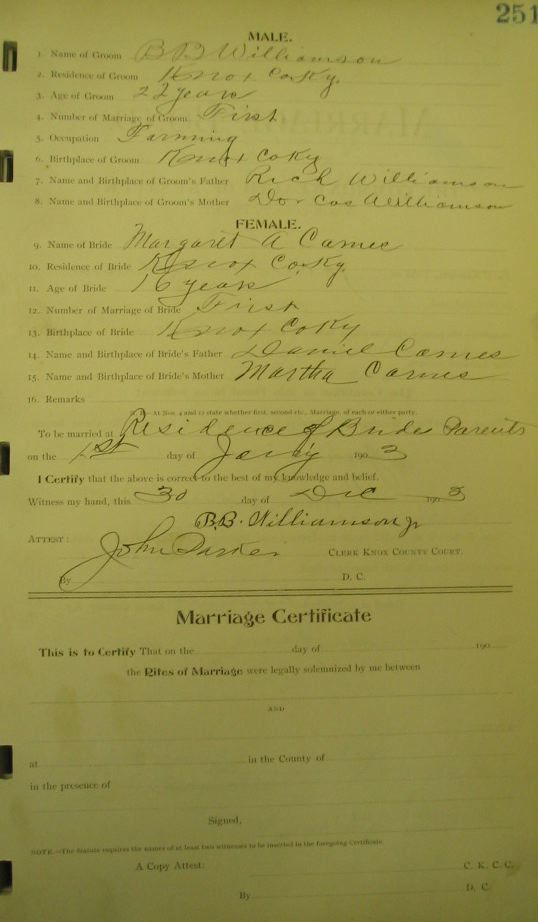 251
MALE.
1. Name of Groom B B Williamson
2. Residence of Groom Knox Co Ky.
3. Age of Groom 22 years
4. Number of Marriage of Groom First
5. Occupation Farming
6. Birthplace of Groom Knox Co Ky
7. Name and Birthplace of Groom's Father Rich Williamson
8. Name and Birthplace of Groom's Mother Dorcas Williamson
FEMALE.
9. Name of Bride Margaret A Carnes
10. Residence of Bride Knox Co. Ky.
11. Age of Bride 16 years
12. Number of Marriage of Bride First
13. Birthplace of Bride Knox Co Ky
14. Name and Birthplace of Bride's Father Daniel Carnes
15. Name and Birthplace of Bride's Mother Martha Carnes
16. Remarks
At Nos. 4 and 12 state whether first, second etc., Marriage, of each or either party.
To be married at Residence of Brides Parents
on the 1st day of Jany 1903
I Certify that the above is correct to the best of my knowledge and belief.
Witness my hand, this 30 day of Dec 1903
B.B. Williamson Jr
ATTEST:
John Parker CLERK KNOX COUNTY COURT.
By D. C.
Marriage Certificate
This is to Certify That on the day of 190
the Rites of Marriage were legally solemnized by me between
AND
at in the County of
in the presence of
Signed,
NOTE.—The Statute requires the names of at least two witnesses to be inserted in the foregoing Certificate.
A Copy Attest: C. K. C. C.
By D. C.